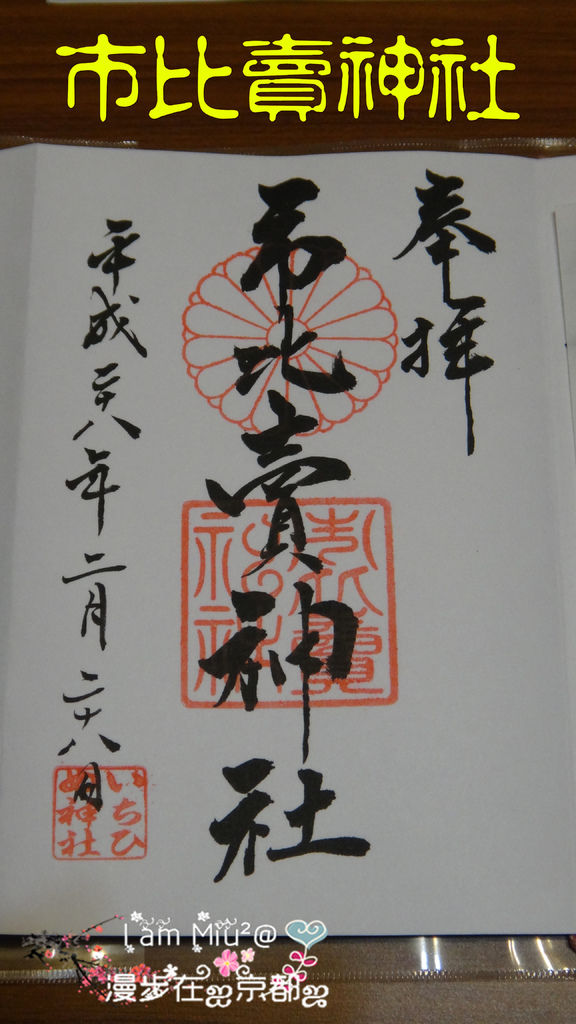 市比賣神社
奉拝
市比賣神社
平成二十八年二月二十八日
いちひ
め神社
I am Miu²@
漫步在ஐ京都ஐ